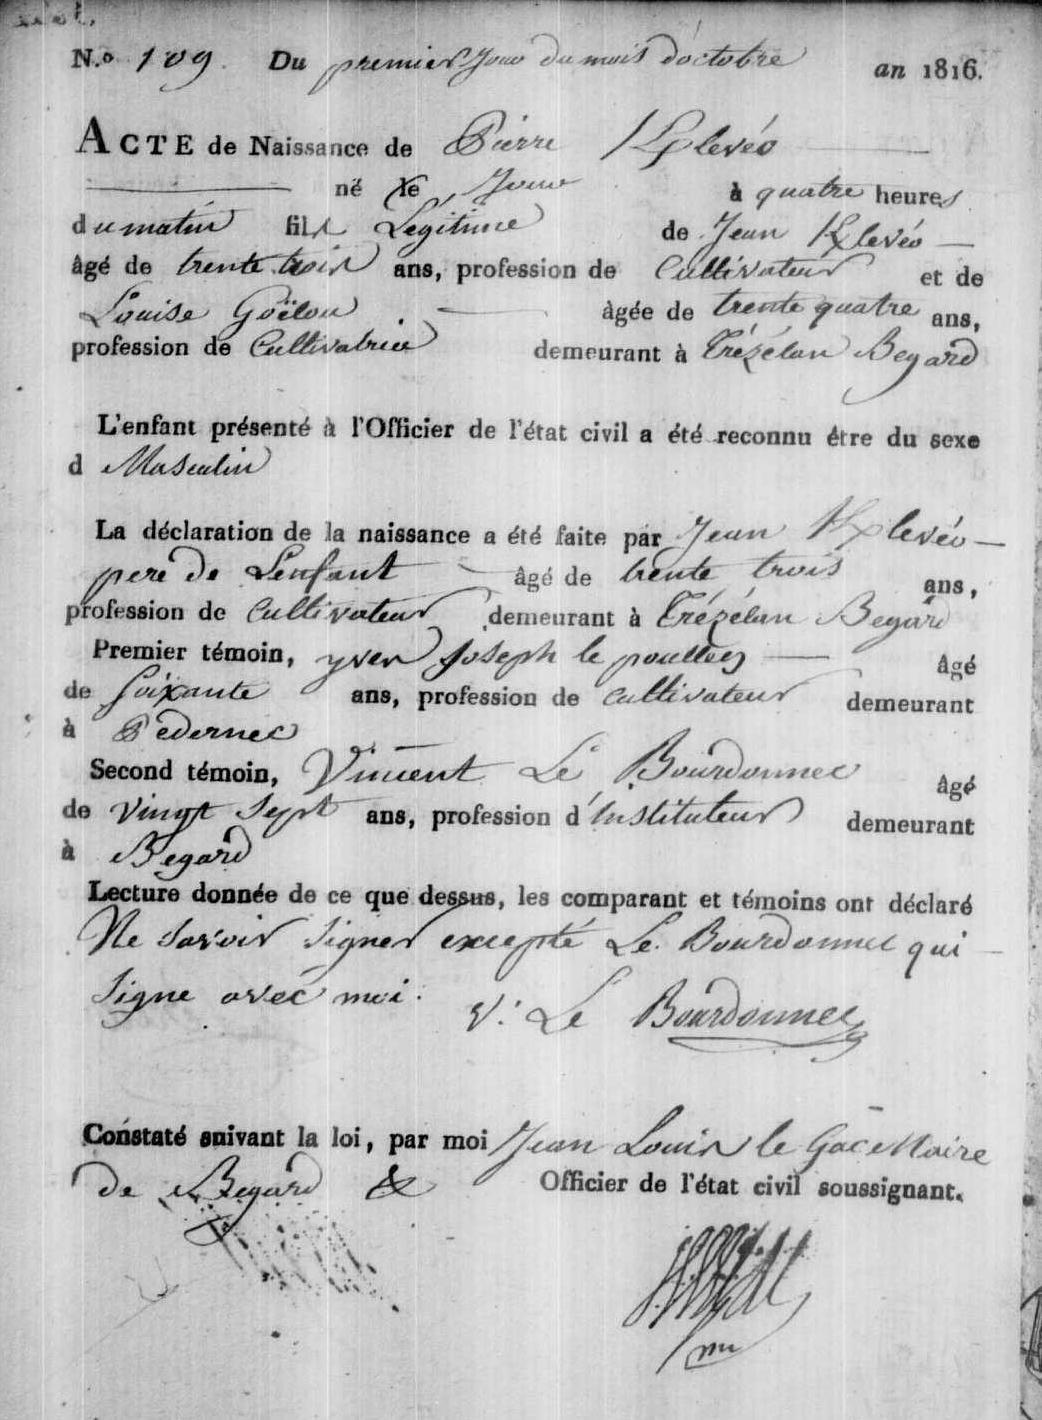 N.º 109. Du premier jour du mois d'octobre an 1816.
ACTE de Naissance de Pierre K/levéo
né ce jour à quatre heures
du matin fils Légitime de Jean K/levéo
âgé de trente trois ans, profession de Cultivateur et de
Louise Goëlou âgée de trente quatre ans,
profession de Cultivatrice demeurant à Trézélan Begard
L'enfant présenté à l'Officier de l'état civil a été reconnu être du sexe
d Masculin
La déclaration de la naissance a été faite par Jean K/levéo
pere de L'enfant âgé de trente trois ans,
profession de Cultivateur demeurant à Trézélan Begard
Premier témoin, yves Joseph le âgé
de soixante ans, profession de cultivateur demeurant
à Pedernec
Second témoin, Vincent Le Bourdonnec âgé
de vingt sept ans, profession d'instituteur demeurant
à Begard
Lecture donnée de ce que dessus, les comparant et témoins ont déclaré
Ne savoir signer excepté Le Bourdonnec qui
signe avec moi.
V. Le Bourdonnec
Constaté suivant la loi, par moi Jean Louis le Gac Maire
de Begard & Officier de l'état civil soussignant.